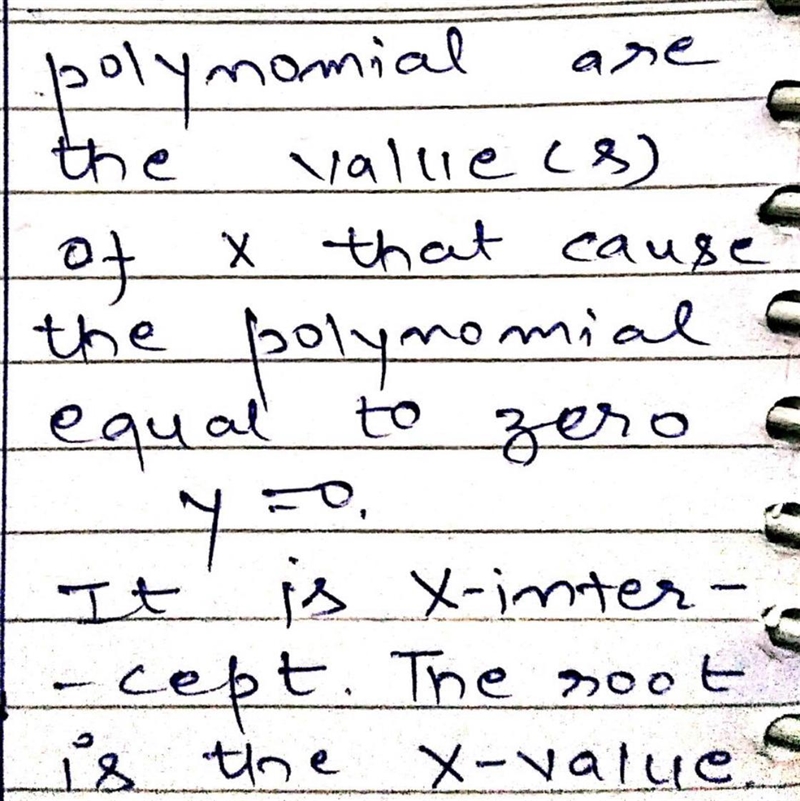 polynomial are
the value(s)
of x that cause
the polynomial
equal to zero
y = 0.
It is X-inter-
-cept. The root
is the X-value.